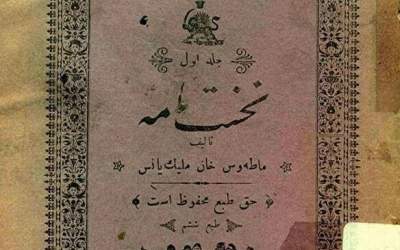 جلد اول
نخست نامه
تالیف
ماطه‌وس خان ملیک‌یانس
حق طبع محفوظ است
طبع ششم